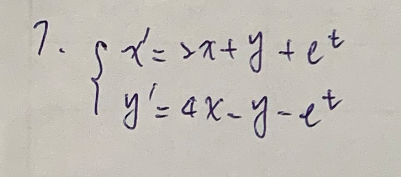 7. { x' = 2x + y + e^t
y' = 4x - y - e^t